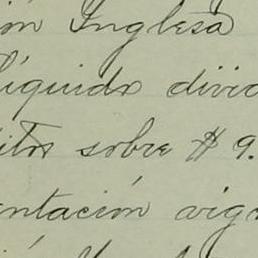 ón Inglesa
líquido divid
itos sobre $ 9.
entación vig